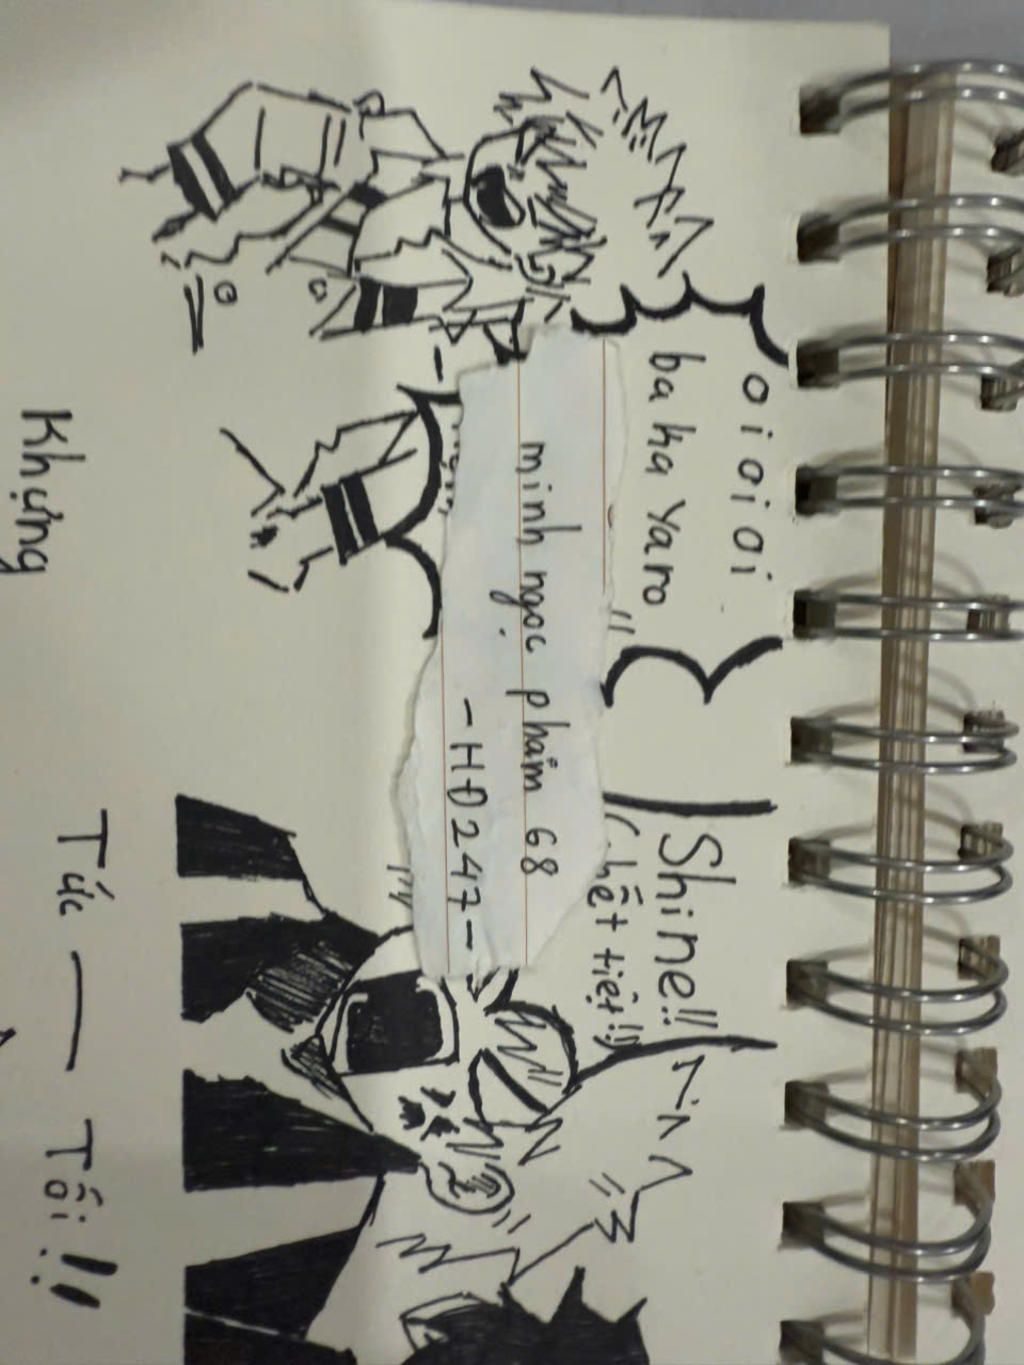 oioioioi
baka yaro
Shine!!
(chết tiệt!!)
minh ngọc phẩm 68
-HĐ247-
Khựng
Tức — Tối!!